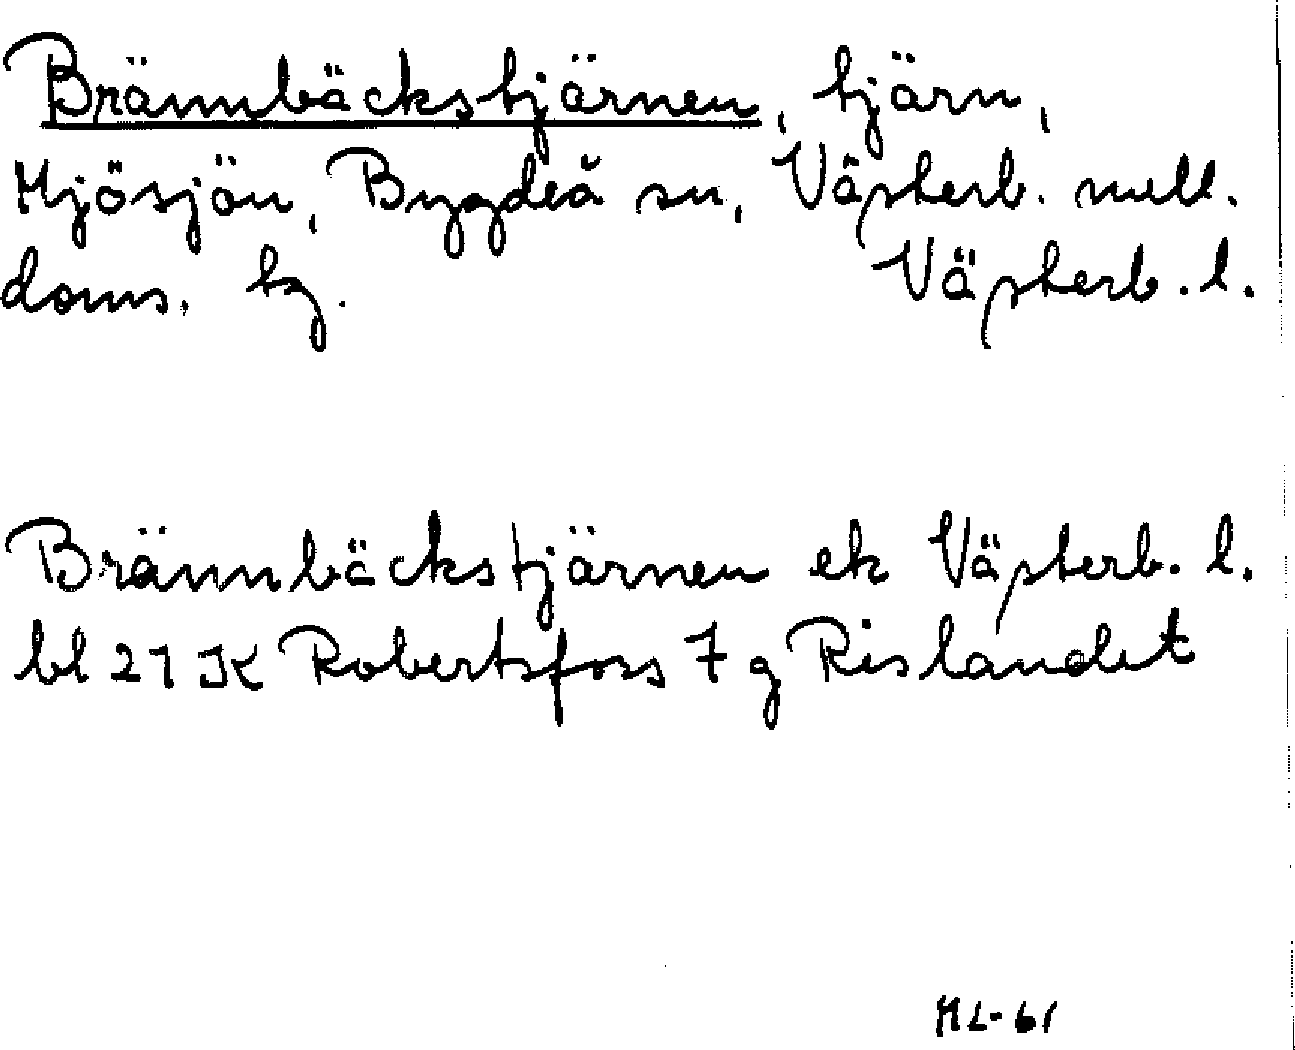 Brännbäckstjärnen, tjärn,
Mjösjön, Bygdeå sn, Västerb. mell.
doms. tg. Västerb. l.
Brännbäckstjärnen ek Västerb. l.
bl 21 K Robertsfors 7 g Rislandet
HL-61